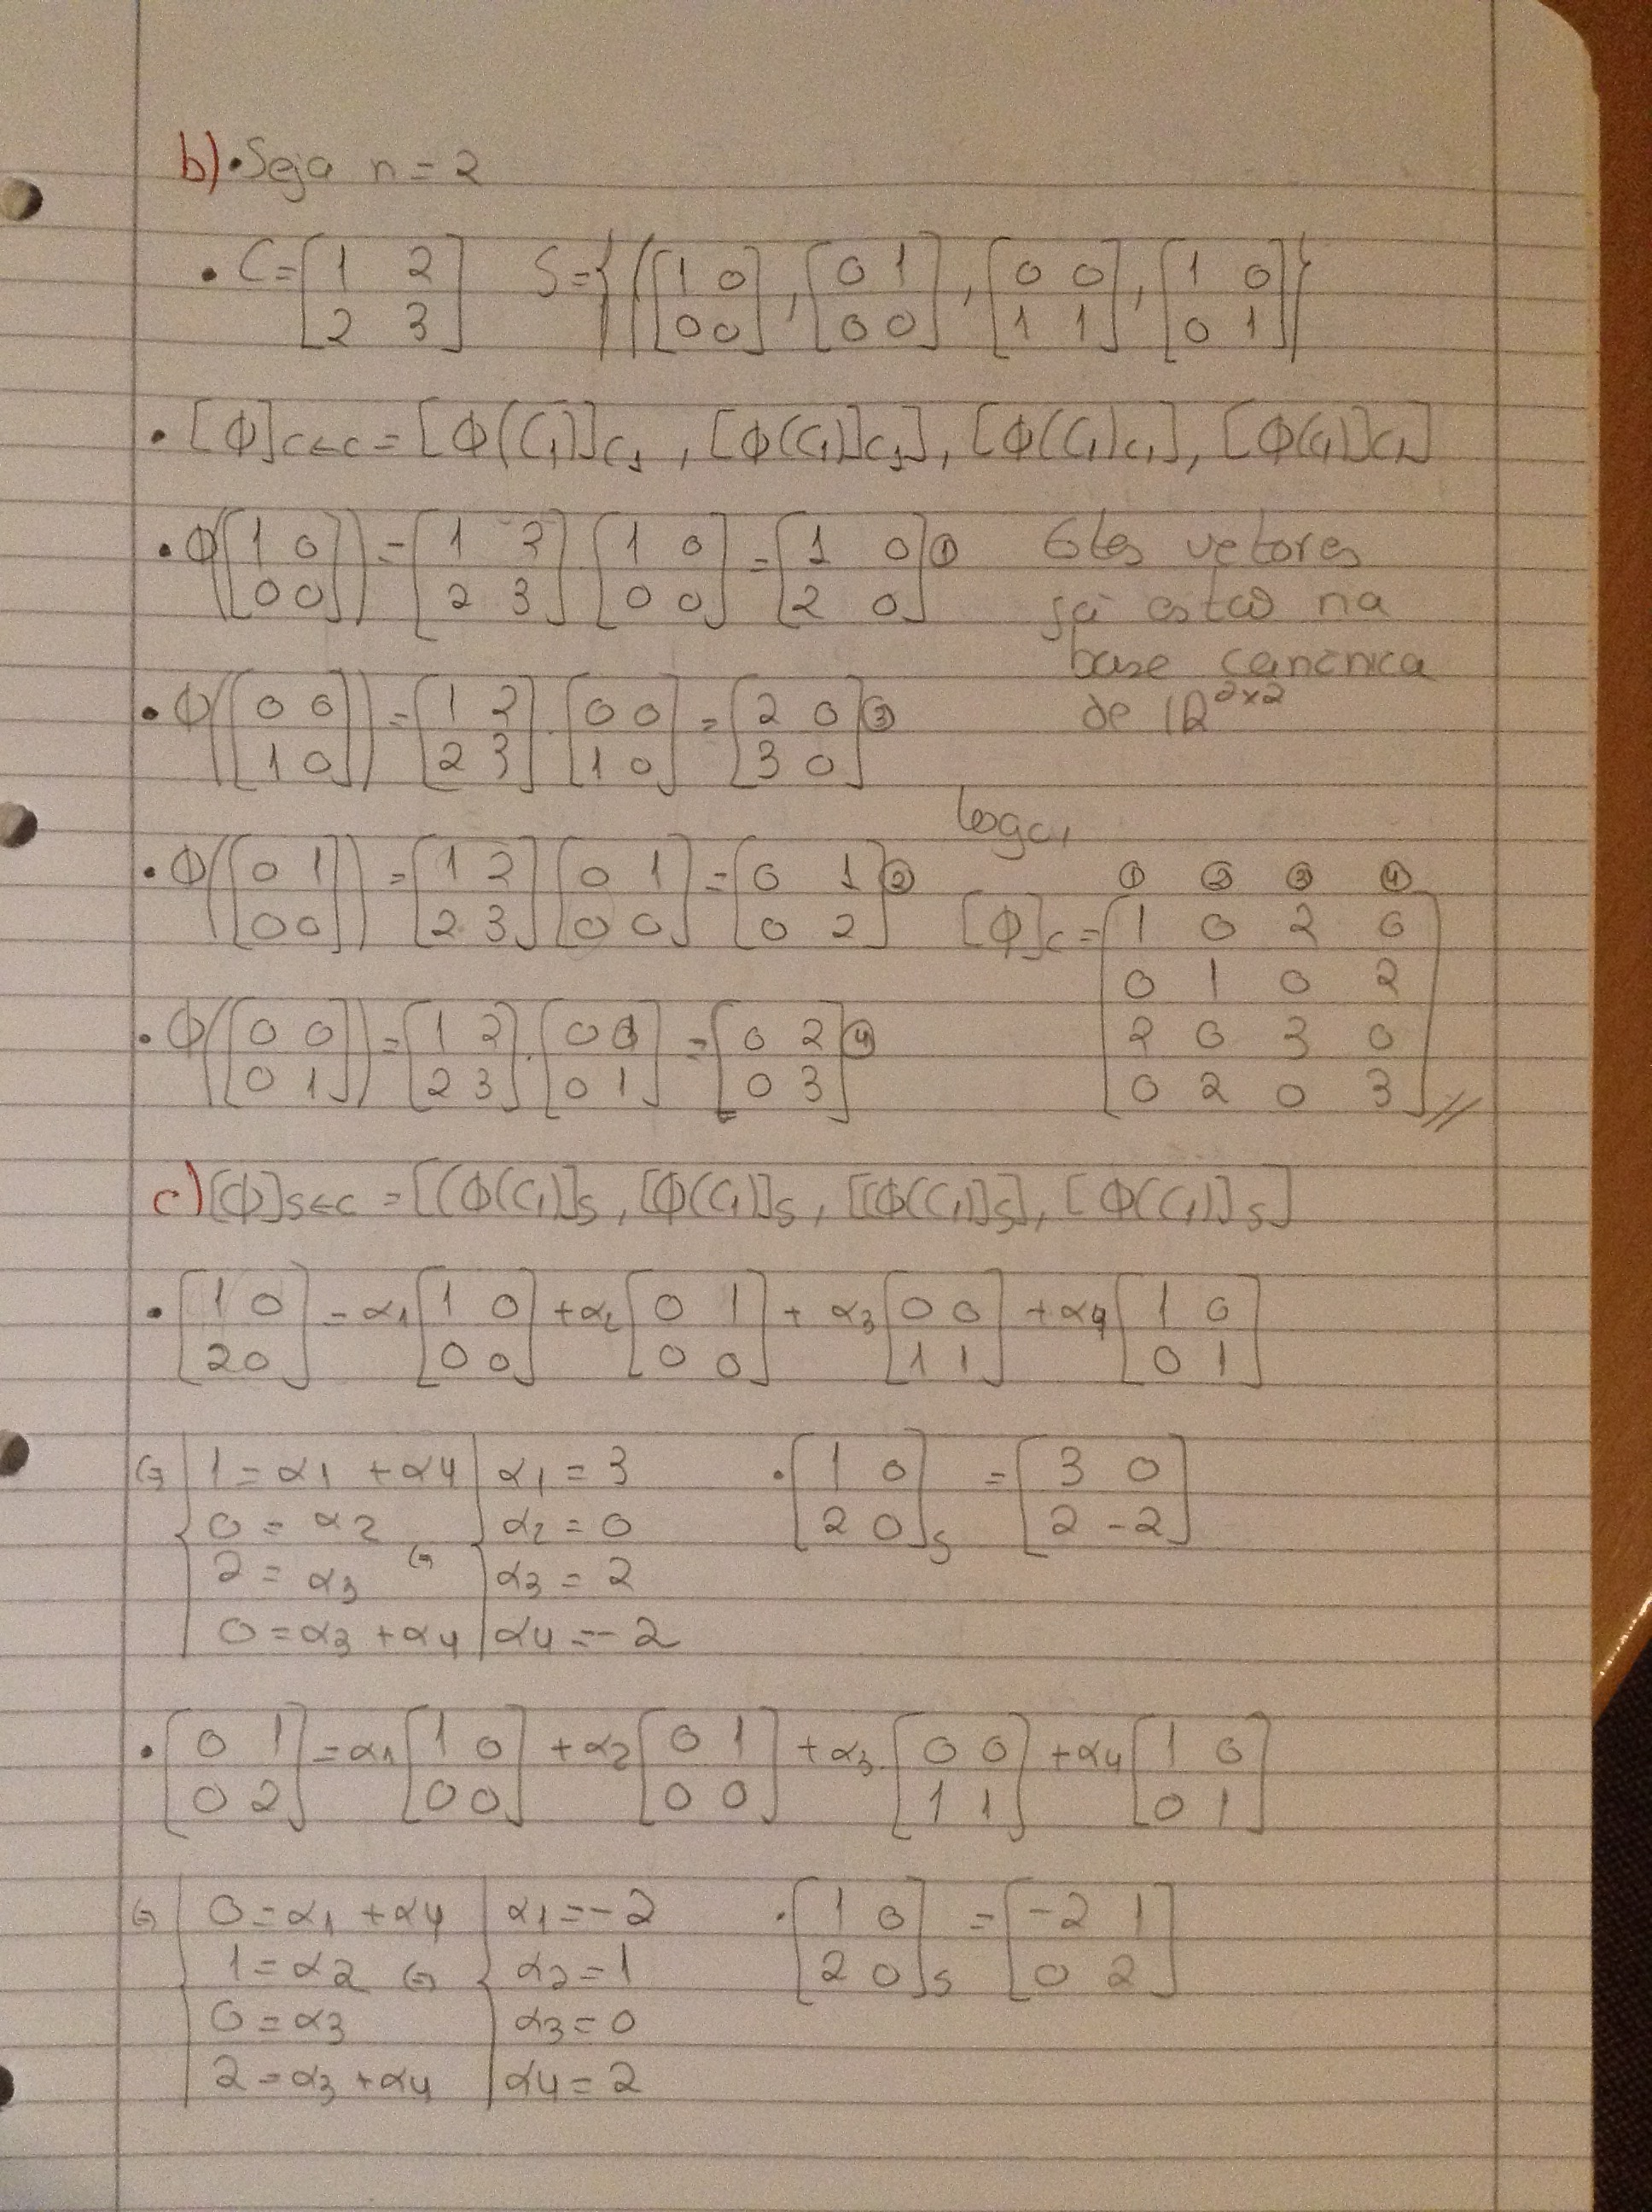 b) • Seja n = 2
• C = [1 2; 2 3] S = {[1 0; 0 0], [0 1; 0 0], [0 0; 1 1], [1 0; 0 1]}
• [Φ]C←C = [Φ(C1)]C1, [Φ(C1)]C1], [Φ(C1)C1], [Φ(C1)]C1]
• Φ([1 0; 0 0]) = [1 2; 2 3] [1 0; 0 0] = [1 0; 2 0] ① Estes vetores
já estão na
base canónica
de ℝ²ˣ²
• Φ([0 0; 1 0]) = [1 2; 2 3] · [0 0; 1 0] = [2 0; 3 0] ③
logo,
• Φ([0 1; 0 0]) = [1 2; 2 3] [0 1; 0 0] = [0 1; 0 2] ②
① ② ③ ④
[Φ]C = [1 0 2 0
0 1 0 2
2 0 3 0
0 2 0 3] //
• Φ([0 0; 0 1]) = [1 2; 2 3] · [0 0; 0 1] = [0 2; 0 3] ④
c) [Φ]S←C = [(Φ(C1)]S, [Φ(C1)]S, [[Φ(C1)]S], [Φ(C1)]S]
• [1 0; 2 0] = α1 [1 0; 0 0] + α2 [0 1; 0 0] + α3 [0 0; 1 1] + α4 [1 0; 0 1]
⇔ { 1 = α1 + α4 { α1 = 3 • [1 0; 2 0]S = [3 0; 2 -2]
0 = α2 ⇔ α2 = 0
2 = α3 α3 = 2
0 = α3 + α4 α4 = -2
• [0 1; 0 2] = α1 [1 0; 0 0] + α2 [0 1; 0 0] + α3 [0 0; 1 1] + α4 [1 0; 0 1]
⇔ { 0 = α1 + α4 { α1 = -2 • [1 0; 2 0]S = [-2 1; 0 2]
1 = α2 ⇔ α2 = 1
0 = α3 α3 = 0
2 = α3 + α4 α4 = 2